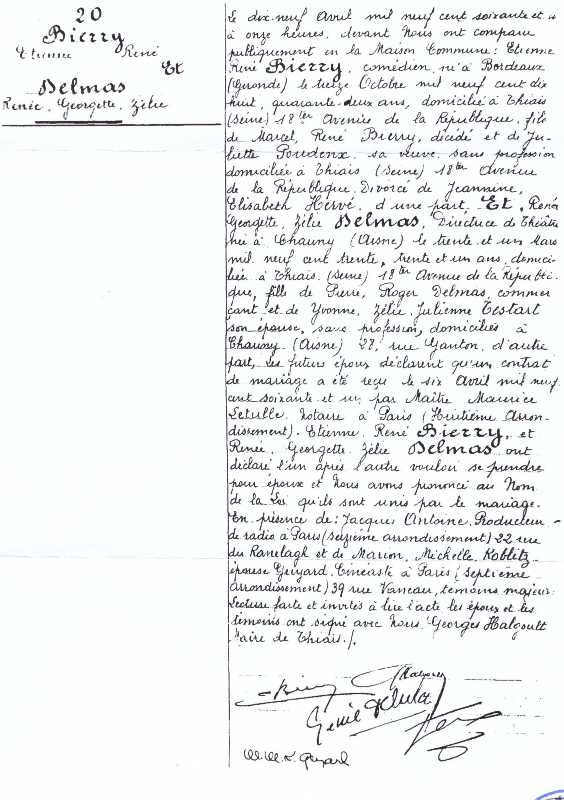 20
Bierry
Etienne René
Et
Delmas
Renée, Georgette, Zélie
Le dix-neuf Avril mil neuf cent soixante et un
à onze heures, devant Nous ont comparu
publiquement en la Maison Commune: Etienne
René Bierry, comédien, né à Bordeaux
(Gironde) le treize Octobre mil neuf cent dix
huit, quarante-deux ans, domicilié à Thiais
(Seine) 18ter Avenue de la République, fils
de Marcel, René Bierry, décédé et de Ju-
liette Poudenx sa veuve, sans profession
domiciliée à Thiais (Seine) 18ter Avenue
de la République. Divorcé de Jeannine,
Elisabeth Hervé, d'une part. Et, Renée
Georgette, Zélie Delmas, Directrice de Théâtre
née à Chauny (Aisne) le trente et un Mars
mil neuf cent trente, trente et un ans, domici-
liée à Thiais (Seine) 18ter Avenue de la Républi-
que, fille de Pierre, Roger Delmas, commer
çant et de Yvonne, Zélie, Julienne Testart
son épouse, sans profession, domiciliés à
Chauny (Aisne) 27, rue Ganton, d'autre
part, Les futurs époux déclarent qu'un contrat
de mariage a été reçu le six Avril mil neuf
cent soixante et un par Maître Maurice
Letulle Notaire à Paris (Huitième Arron-
dissement). Etienne, René Bierry, et
Renée, Georgette Zélie Delmas ont
déclaré l'un après l'autre vouloir se prendre
pour époux et Nous avons prononcé au Nom
de la Loi qu'ils sont unis par le mariage.
En présence de: Jacques Antoine, Producteur
de radio à Paris (seizième arrondissement) 22 rue
du Ranelagh et de Marion, Michelle, Koblitz
épouse Guyard, Cinéaste à Paris (septième
arrondissement) 39 rue Vaneau, témoins majeurs
Lecture faite et invités à lire l'acte les époux et les
témoins ont signé avec Nous, Georges Halgoult
Maire de Thiais./.